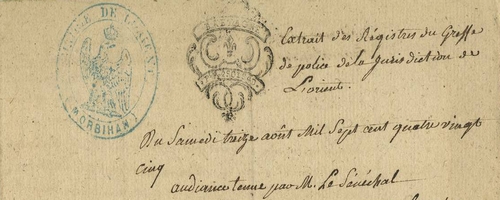 MAIRIE DE LORIENT
(MORBIHAN)
Extrait des Régistres du Greffe
de police de la Jurisdiction de
Lorient.
Du Samedi treize août Mil Sept cent quatre vingt
cinq
audiance tenue par M. Le Sénéchal